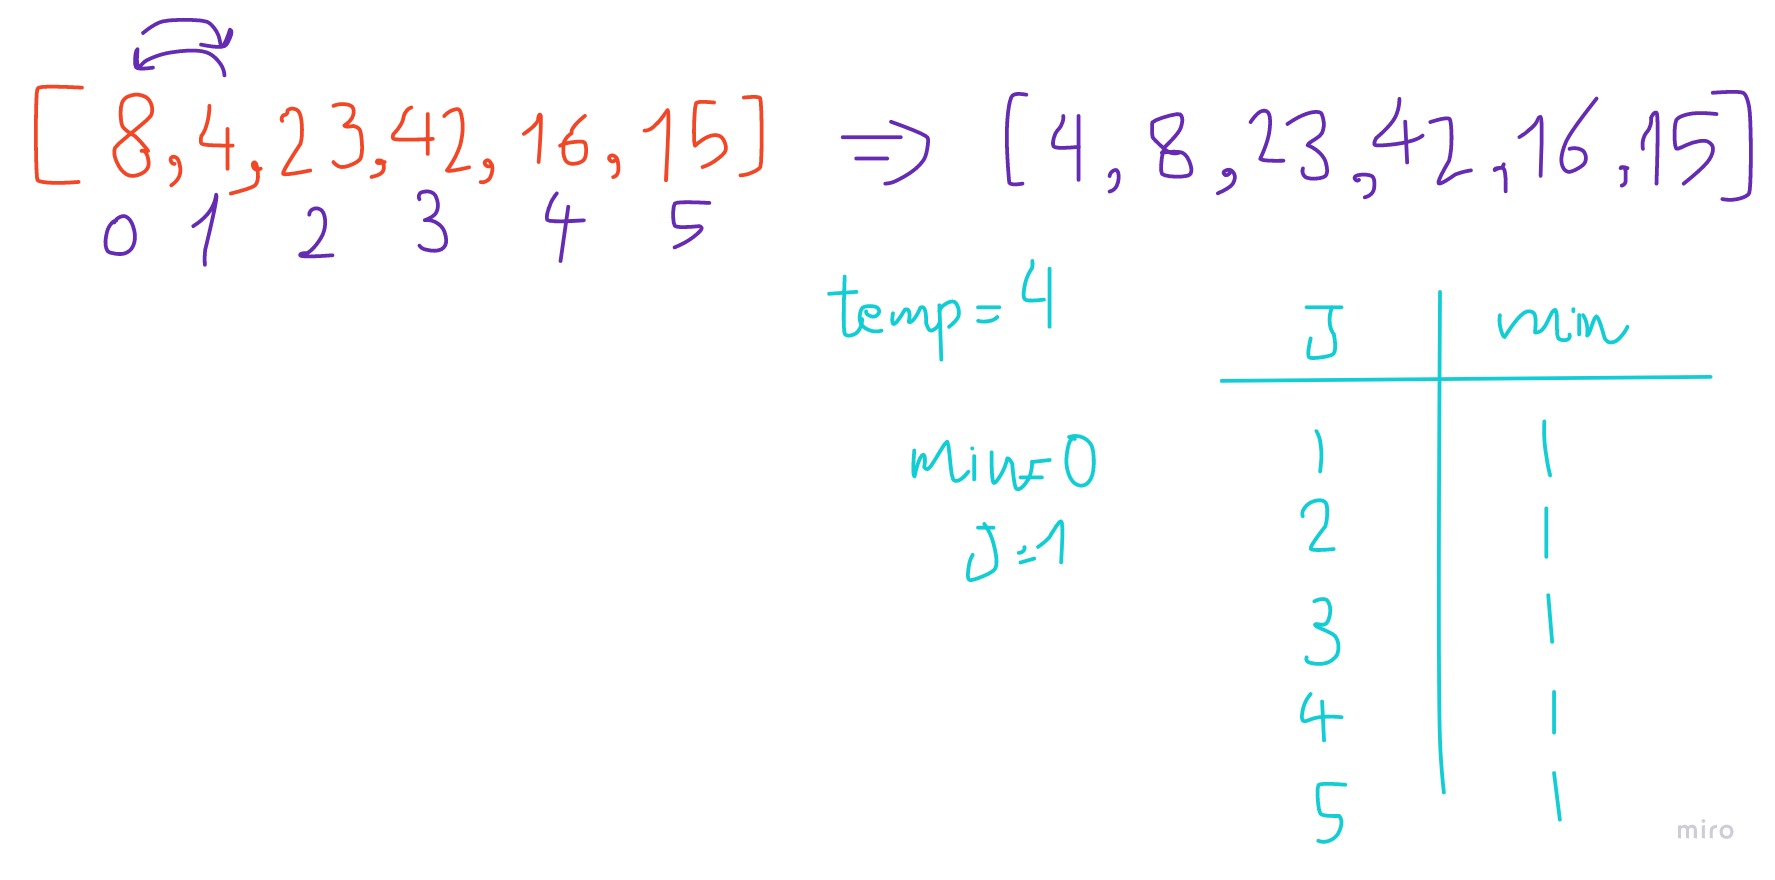 [8,4,23,42,16,15] ⇒ [4,8,23,42,16,15]
0 1 2 3 4 5
temp=4
J min
min=0
J=1
1 1
2 1
3 1
4 1
5 1
miro